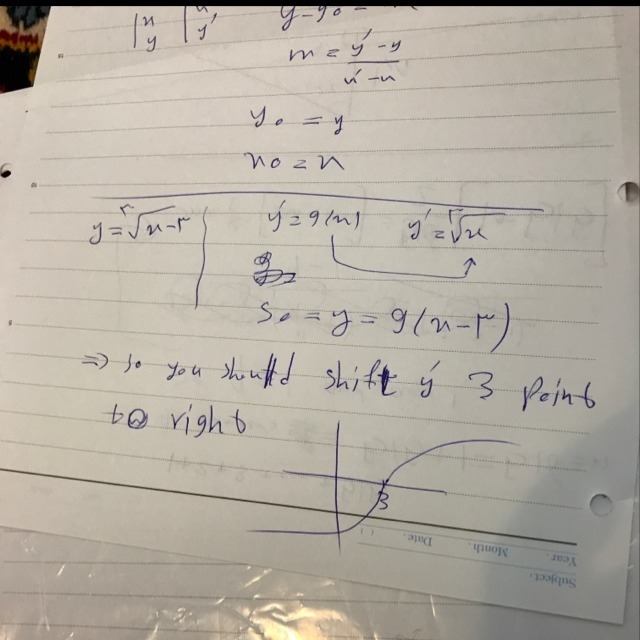 x x' y-y₀ =
y y'
m = y'-y / x'-x
y₀ = y
x₀ = x
y = ∛x-۳ y' = g(x) y' = ∛x
So = y = g(x-۳)
⇒ so you should shift y' 3 point
to right
3
Subject.
Year. Month. Date. ( )